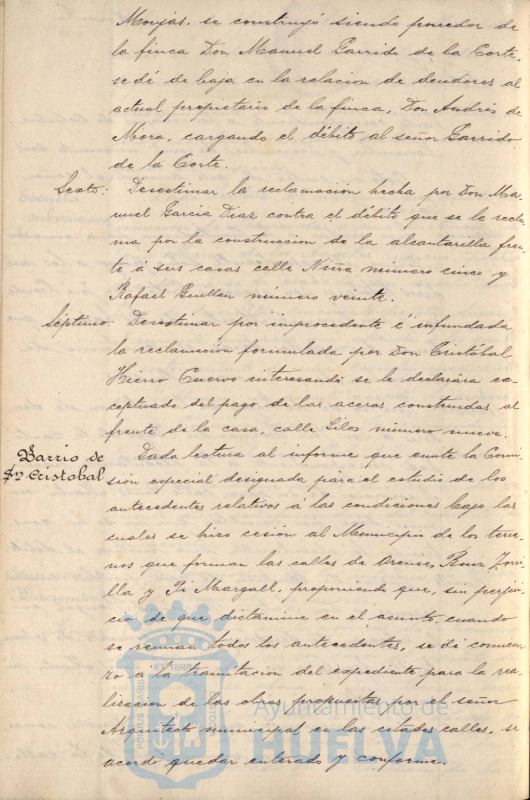 Monjas, se construyó siendo poseedor de
la finca Don Manuel Garrido de la Corte,
se dé de baja en la relacion de deudores al
actual propietario de la finca, Don Andrés de
Mora, cargando el débito al señor Garrido
de la Corte.
Sexto: Desestimar la reclamacion hecha por Don Ma-
nuel Garcia Diaz contra el débito que se le recla-
ma por la construccion de la alcantarilla fren-
te á sus casas calle Niña número cinco y
Rafael Guillen número veinte.
Séptimo: Desestimar por improcedente é infundada
la reclamación formulada por Don Cristóbal
Hierro Cuervo interesando se le declarára ex-
ceptuado del pago de las aceras construidas al
frente de la casa, calle Silos número nueve.
Barrio de
Sn Cristobal
Dada lectura al informe que emite la Comi-
sión especial designada para el estudio de los
antecedentes relativos á las condiciones bajo las
cuales se hizo cesión al Municipio de los terre-
nos que forman las calles de Orense, Ruiz Zorri-
lla y Pi Margall, proponiendo que, sin perjui-
cio de que dictamine en el asunto, cuando
se reunan todos los antecedentes, se dé comien-
zo á la tramitacion del expediente para la rea-
lizacion de las obras propuestas por el señor
Arquitecto municipal en las citadas calles, se
acordó quedar enterado y conforme.
Ayuntamiento de
HUELVA